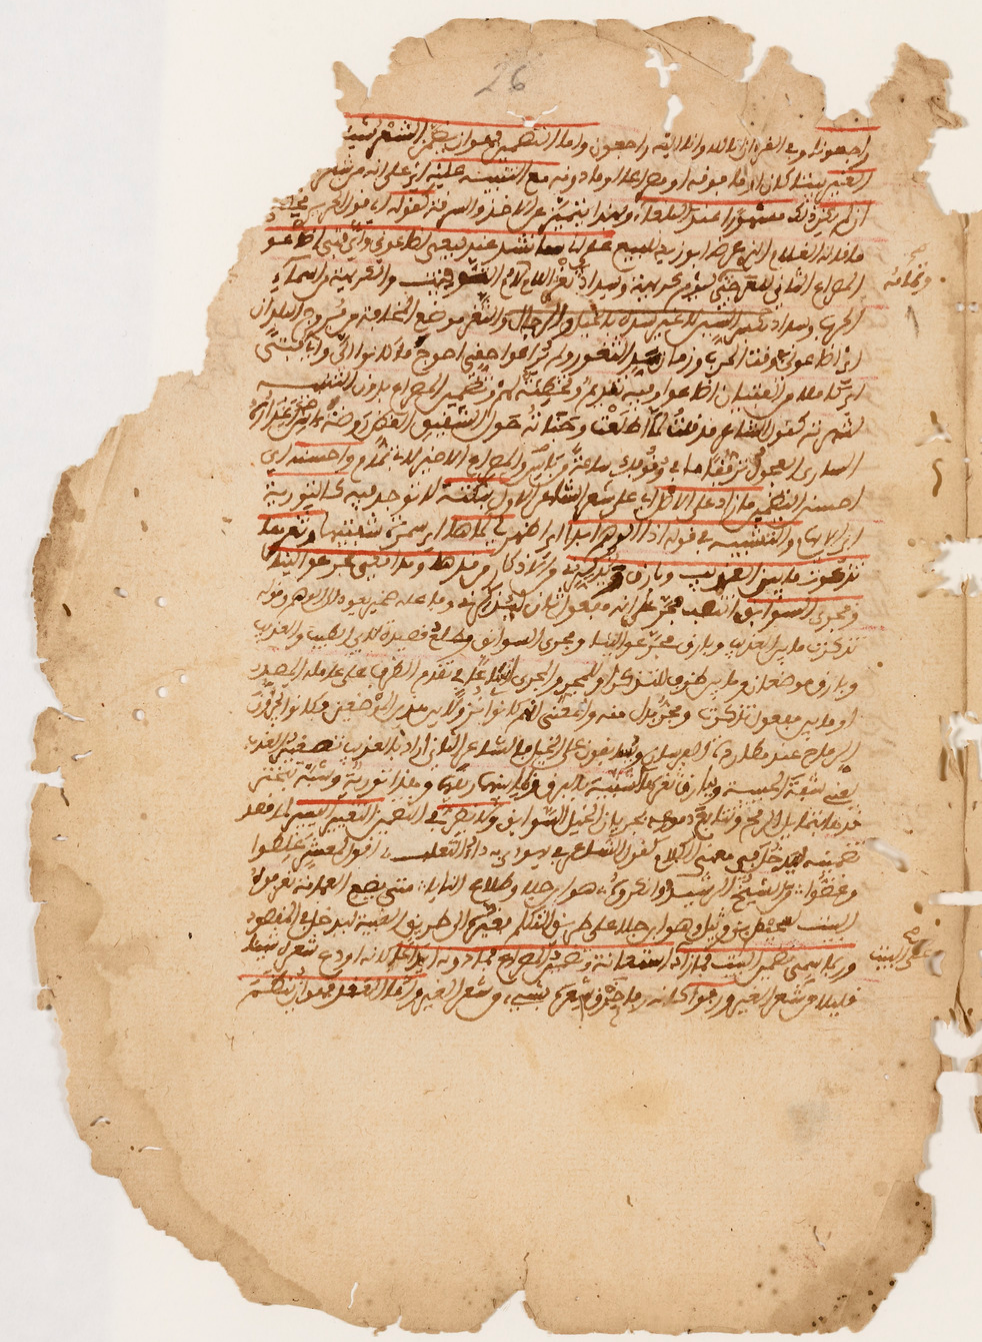 راجعونا وفي القرءان انا لله وانا اليه راجعون واما التضمين فهو ان يضمن الشعر شيئا
الغير بيتا كان او ما فوقه او مصراعا او ما دونه مع التنبيه عليه اي على انه من شعر
ان لم يكن ذلك مشهورا عند البلغاء وبهذا يتميز عن الاخذ والسرقة كقوله اي قول الحريري يحكي
ما قاله الغلام الذي عرضه ابو زيد للبيع على اني سانشد عند بيعي اضاعوني واي فتى اضاعوا
المصراع الثاني للعرجي ليوم كريهة وسداد ثغر اللام لام التوقيت والكريهة من اسماء
وتمامه
الحرب وسداد بكسر السين لا غير سده بالخيل والرجال والثغر موضع المخافة من فروج البلدان
اي اضاعوني في وقت الحرب وزمان سد الثغور ولم يراعوا حقي احوج ما كانوا الي واي فتى
اي كاملا من الفتيان اضاعوا وفيه تنديم وتخطئة لهم وتضمين المصراع بدون التنبيه
لشهرته كقول الشاعر قد قلت لما اطلعت وجناته حول الشقيق الغض روضة اس
الساري العجول ترفقا ما في وقوفك ساعة من باس المصراع الاخير لابي تمام واحسنه اي
احسن التضمين ما زاد على الاصل اي على شعر الشاعر الاول بنكتة لا توجد فيه كالتورية
اي الايهام والتشبيه في قوله اذا الوهم ابدا اي اظهر لي لماها اي سمرة شفتيها وثغرها
تذكرت ما بين العذيب وبارق ويذكرني من الاذكار من قدها ومدامعي مجر عوالينا
ومجرى السوابق انتصب مجر على انه مفعول ثان ليذكرني وفاعله ضمير يعود الى الوهم وقوله
تذكرت ما بين العذيب وبارق مجر عوالينا ومجرى السوابق مطلع قصيدة لابي الطيب والعذيب
وبارق موضعان وما بين ظرف للتذكر او للمجر والمجرى اتساعا في تقدم الظرف على عامله المصدر
او ما بين مفعول تذكرت ومجر بدل منه والمعنى انهم كانوا نزولا بين هذين الموضعين فكانوا يجرون
الرماح عند مطاردة الفرسان ويسابقون على الخيل فالشاعر الثاني اراد بالعذيب تصغير العذب
يعني شفة الحبيبة وببارق ثغرها الشبيه بالبرق وبما بينهما ريقها وهذا تورية وشبه تبختر
قدها بتمايل الرمح وتتابع دموعه بجريان الخيل السوابق ولا يضر في التضمين التغيير اليسير لما قصد
تضمينه ليدخل في معنى الكلام كقول الشاعر في يهودي به داء الثعلب اقول لمعشر غلطوا
وغضوا من الشيخ الرشيد وانكروه هو ابن جلا وطلاع الثنايا متى يضع العمامة تعرفوه
البيت لسحيم بن وثيل وهو انا ابن جلا على طريق التكلم فغيره الى طريق الغيبة ليدخل في المقصود
وربما سمي تضمين البيت فما زاد استعانة وتضمين المصراع فما دونه ايداعا كانه اودع شعره شيئا
على البيت
قليلا من شعر الغير ورفوا كانه رفا خرق شعره بشيء من شعر الغير واما العقد فهو ان ينظم